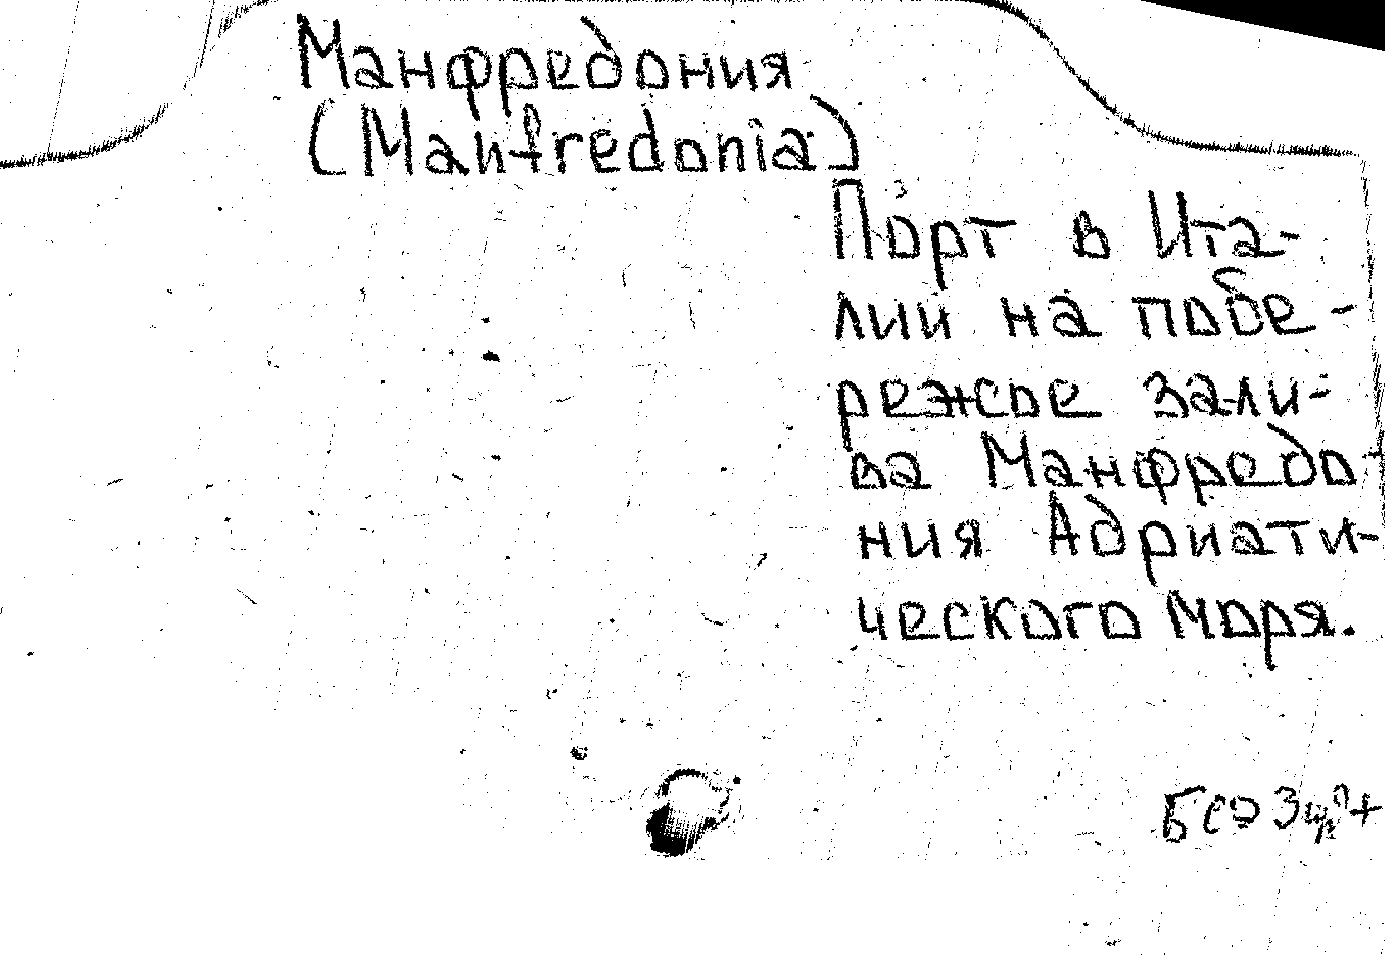 Манфредония
(Manfredonia)
Порт в Ита-
лии на побе-
режье зали-
ва Манфредо-
ния Адриати-
ческого моря.
БСЭ 3